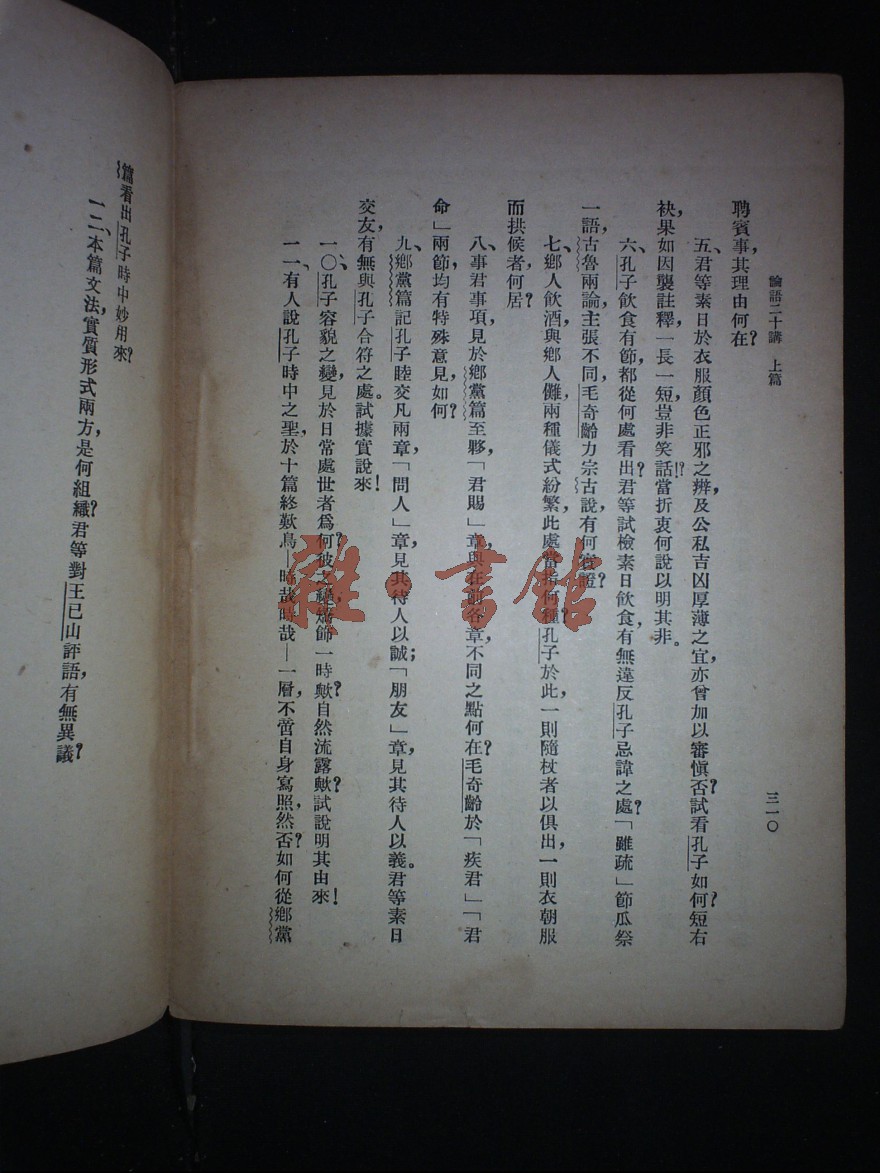 論語二十講 上篇
三一〇
聘賓事,其理由何在?
五、君等素日於衣服顏色正邪之辨,及公私吉凶厚薄之宜,亦曾加以審愼否?試看孔子如何短右
袂?果如因襲註釋,一長一短,豈非笑話!?當折衷何說以明其非。
六、孔子飲食有節,都從何處看出?君等試檢素日飲食,有無違反孔子忌諱之處?「雖疏」節瓜祭
一語,古魯兩論主張不同,毛奇齡力宗古說,有何實證?
七、鄉人飲酒與鄉人儺,兩種儀式紛繁,此處當指何種?孔子於此,一則隨杖者以俱出,一則衣朝服
而拱候者何居?
八、事君事項,見於鄉黨篇至夥,「君賜」章與在前各章,不同之點何在?毛奇齡於「疾君」「君
命」兩節,均有特殊意見,如何?
九、鄉黨篇記孔子睦交凡兩章,「問人」章見其待人以誠;「朋友」章見其待人以義。君等素日
交友,有無與孔子合符之處。試據實說來!
一〇、孔子容貌之變,見於日常處世者爲何?彼之變,矯飾一時歟?自然流露歟?試說明其由來!
一一、有人說孔子時中之聖,於十篇終歎鳥—時哉時哉—一層,不啻自身寫照,然否?如何從鄉黨
篇看出孔子時中妙用來?
一二、本篇文法,實質形式兩方,是何組織?君等對王已山評語,有無異議?
雜·書館